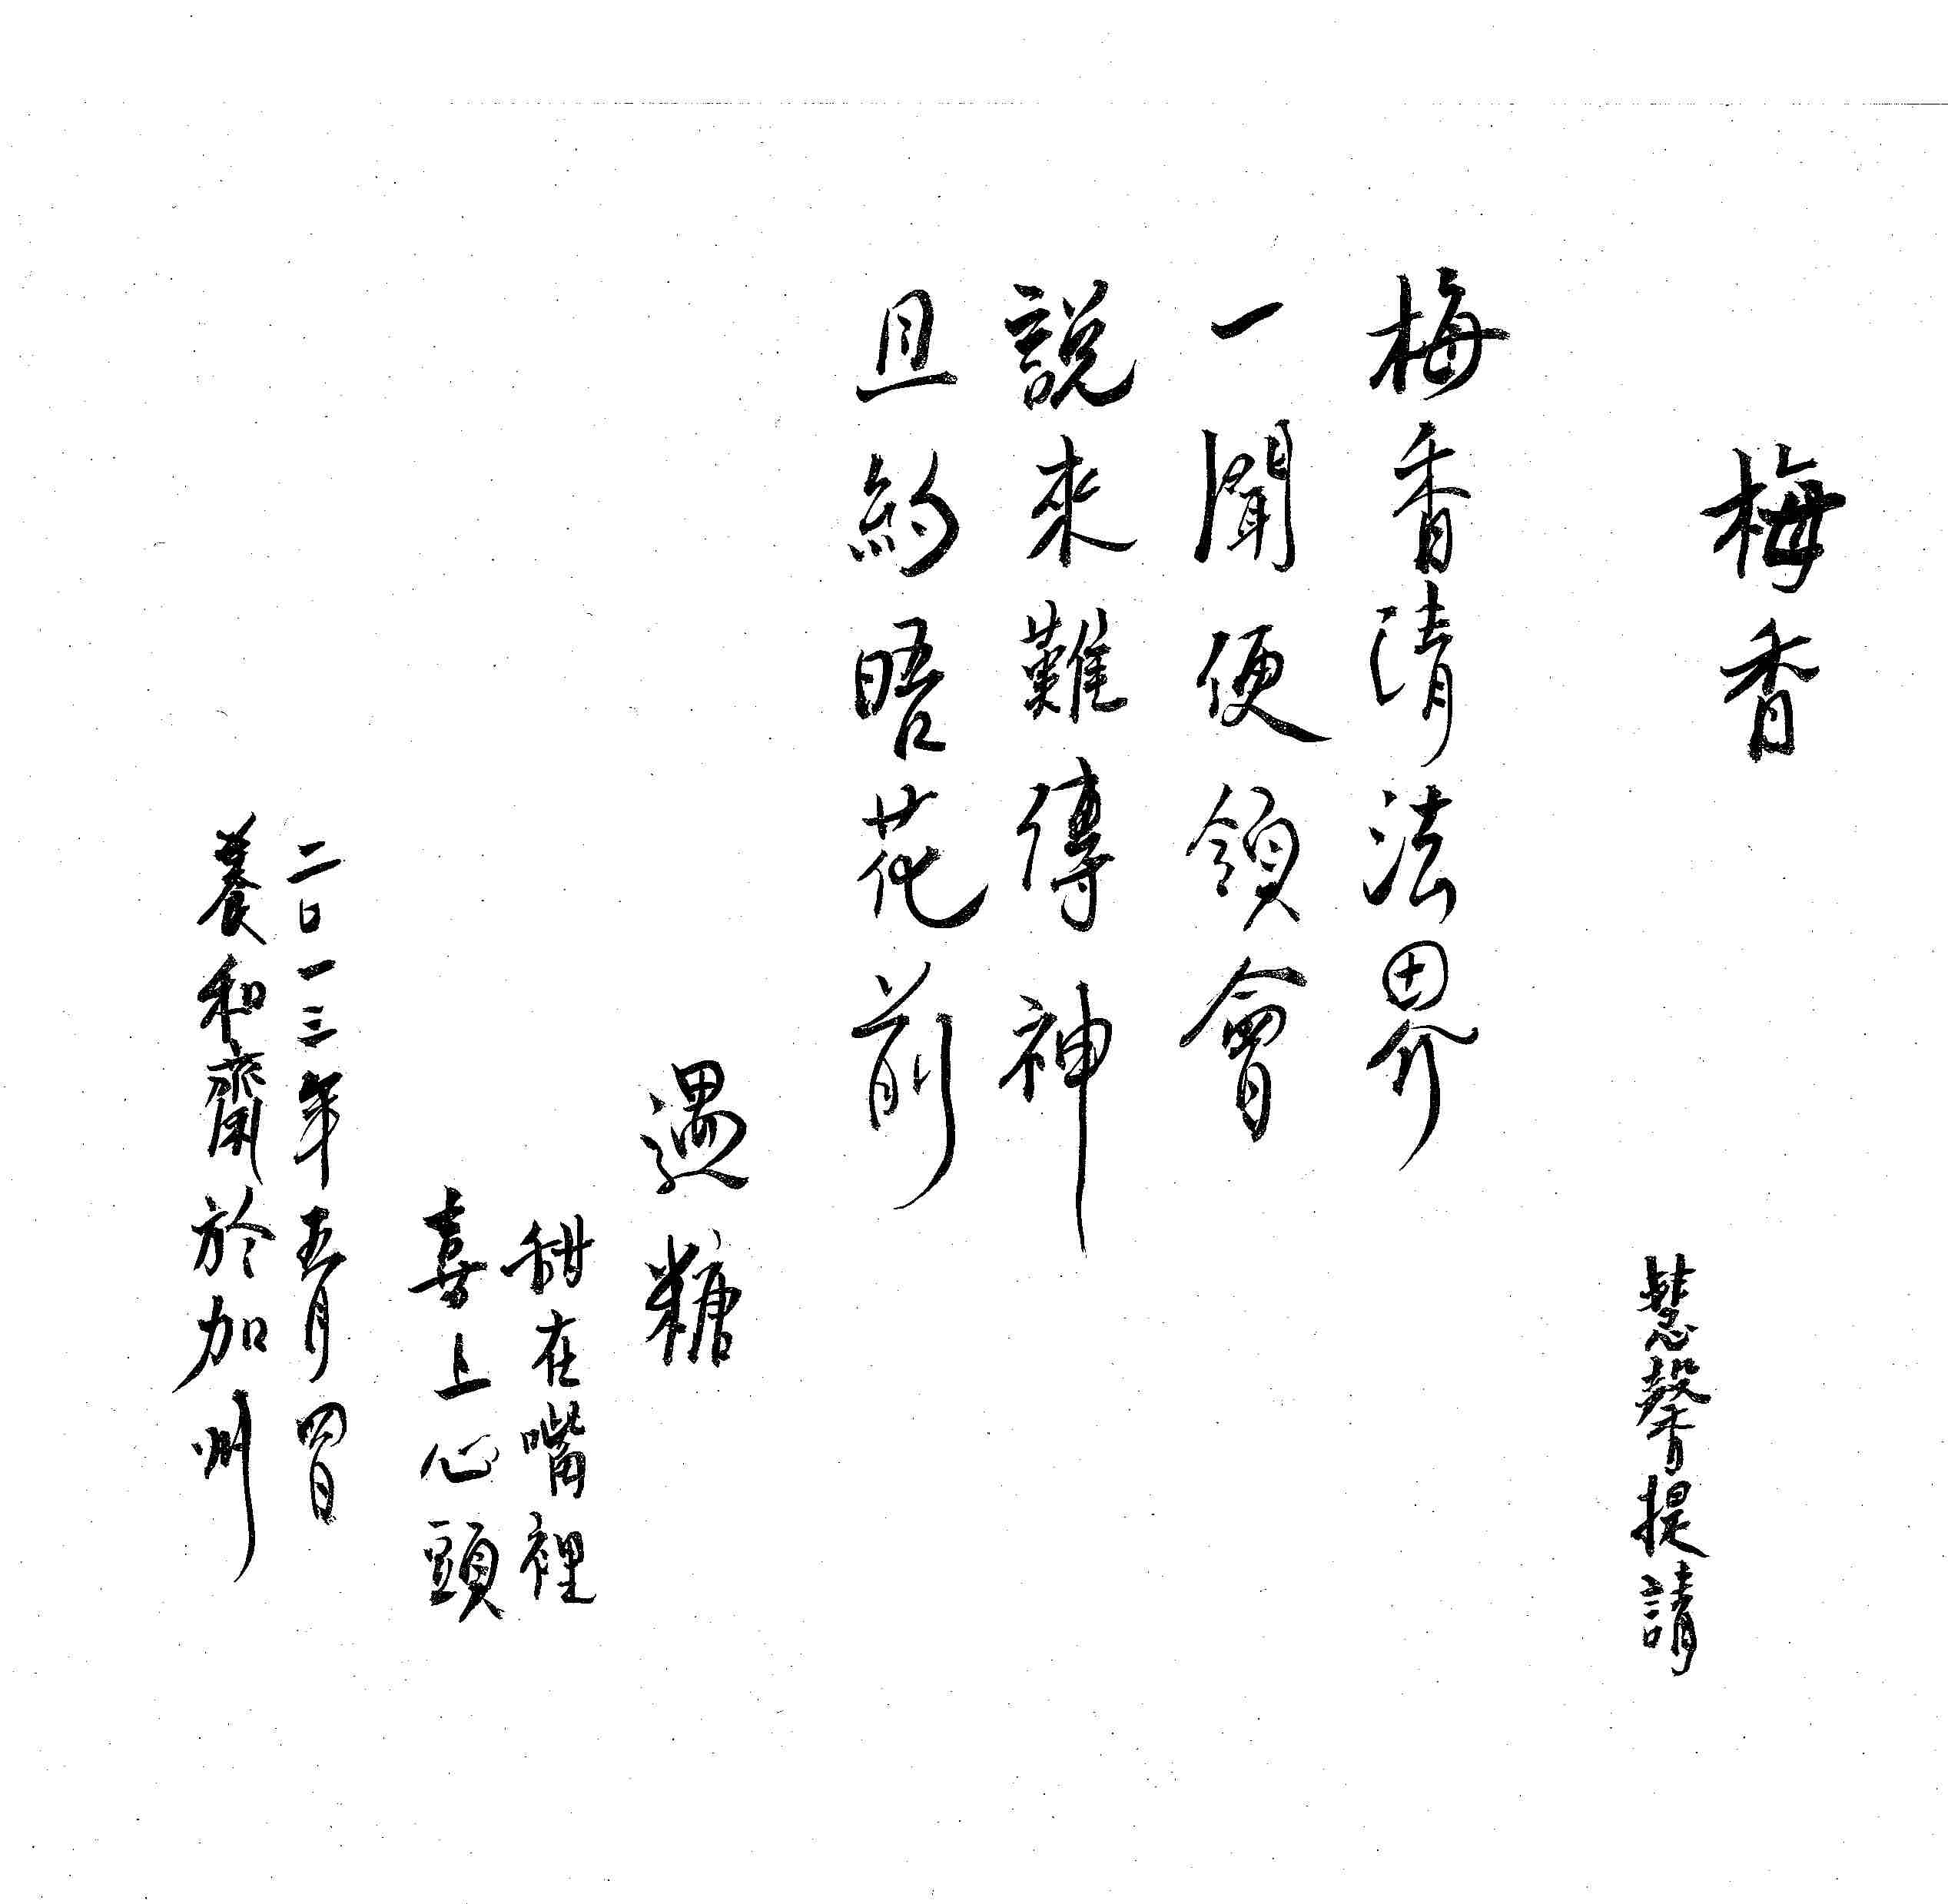 梅香
慧馨提請
梅香清法界
一聞便領會
説來難傳神
且約晤花前
遇糖
甜在嘴裡
喜上心頭
二〇一三年五月四日
養和齋於加州